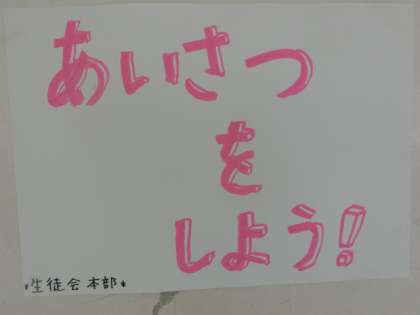 あいさつ
を
しよう!
*生徒会本部*